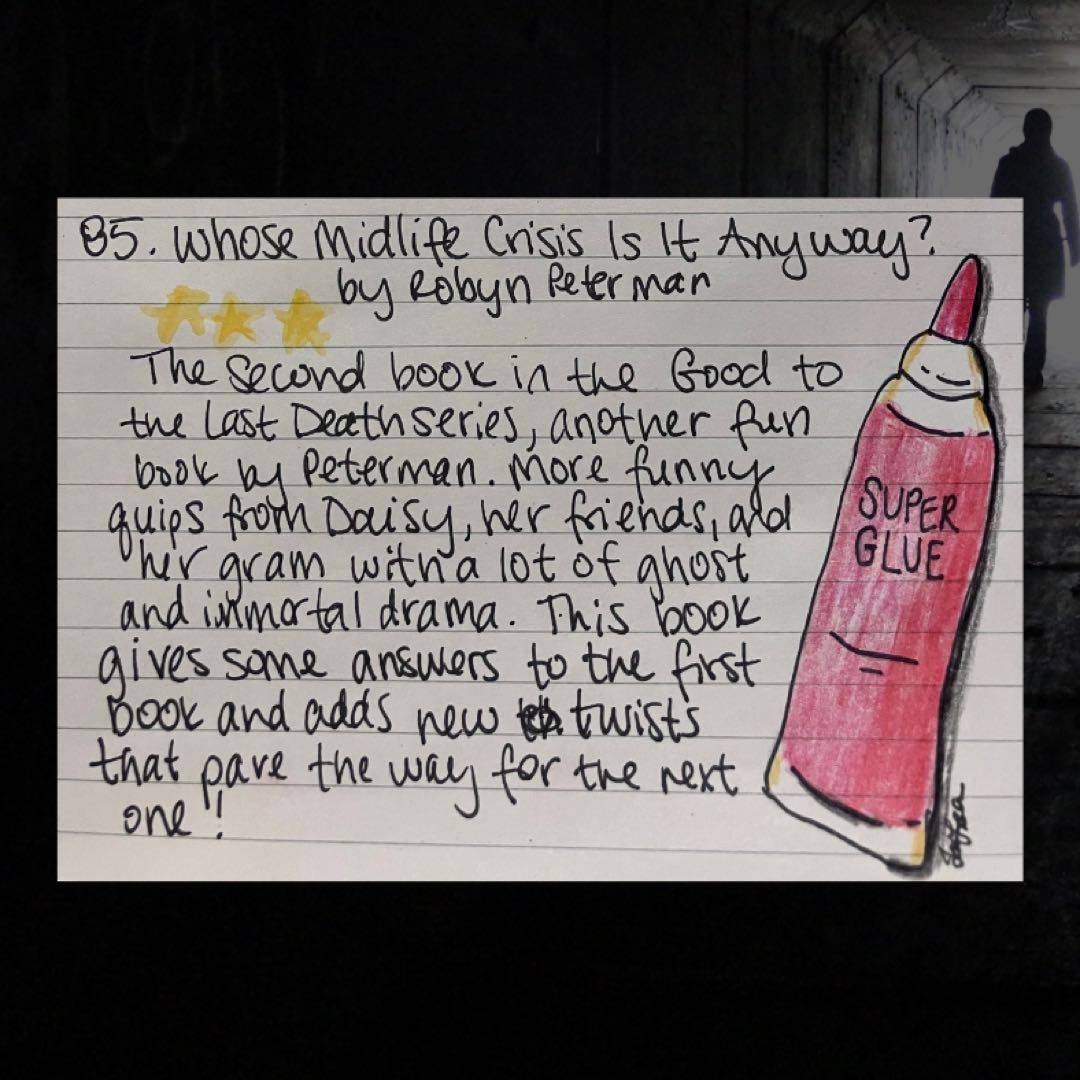 85. Whose Midlife Crisis Is It Anyway?
by Robyn Peterman
The second book in the Good to
the Last Death series, another fun
book by Peterman. More funny
quips from Daisy, her friends, and
her gram with a lot of ghost
and immortal drama. This book
gives some answers to the first
book and adds new twists
that pave the way for the next
one!
SUPER
GLUE